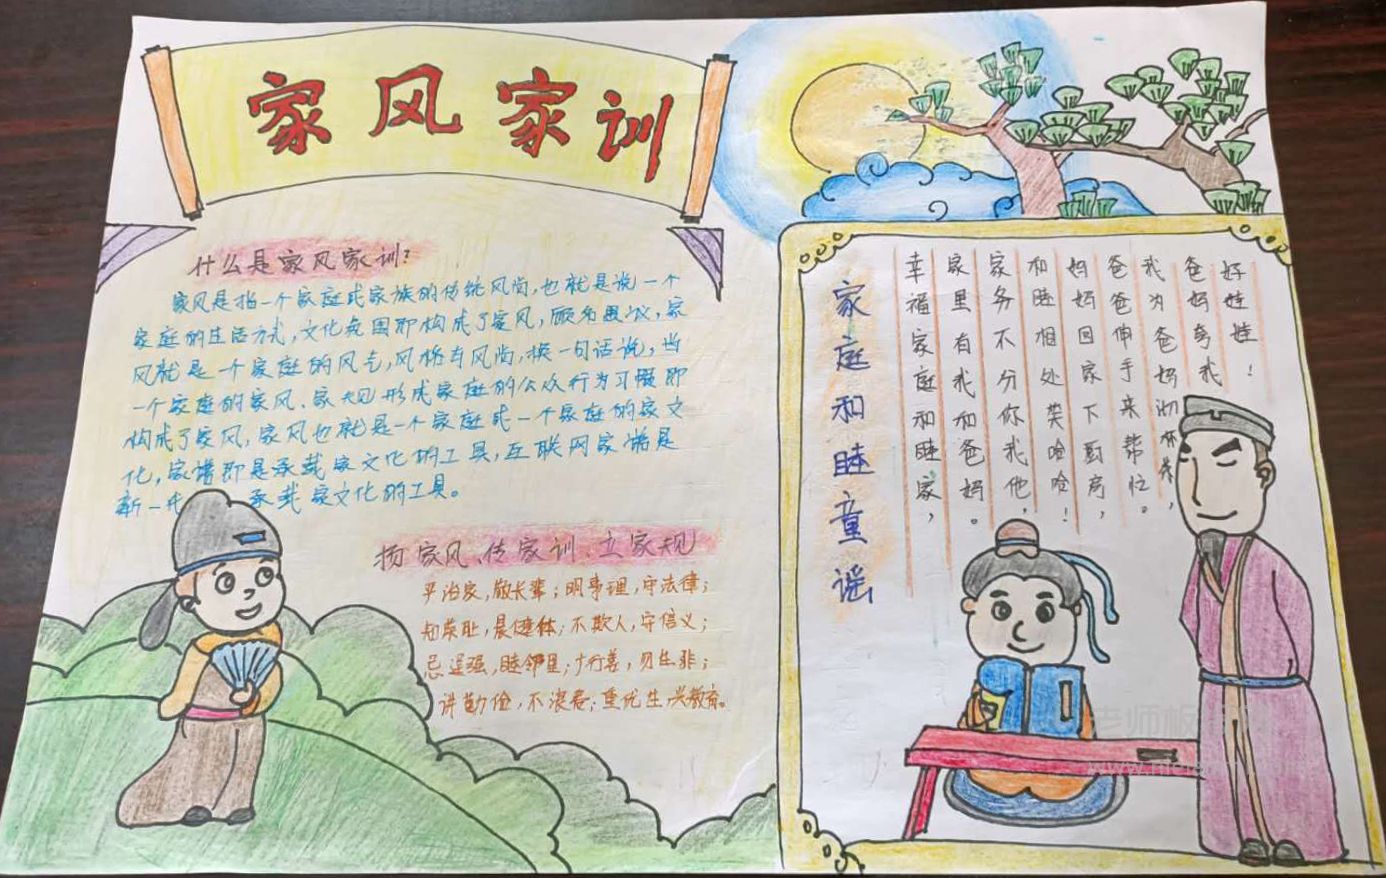 家风家训
什么是家风家训?
家风是指一个家庭或家族的传统风尚,也就是说一个
家庭的生活方式,文化氛围即构成了家风,顾名思议,家
风就是一个家庭的风气,风格与风尚,换一句话说,当
一个家庭的家风、家规形成家庭的公众行为习惯即
构成了家风,家风也就是一个家庭或一个家庭的家文
化,家谱即是承载家文化的工具,互联网家谱是
新一 承载家文化的工具。
扬家风、传家训、立家规
平治家,敬长辈;明事理,守法律;
知荣耻,晨健体;不欺人,守信义;
忌逞强,睦邻里;行善,勿生非;
讲勤俭,不浪费;重优生兴教育。
家庭和睦童谣
幸福家庭和睦家,
家里有我和爸妈。
家务不分你我他,
和睦相处笑哈哈!
妈妈回家下厨房,
爸爸伸手来帮忙。
我为爸妈沏杯茶,
爸妈夸我
好娃娃!